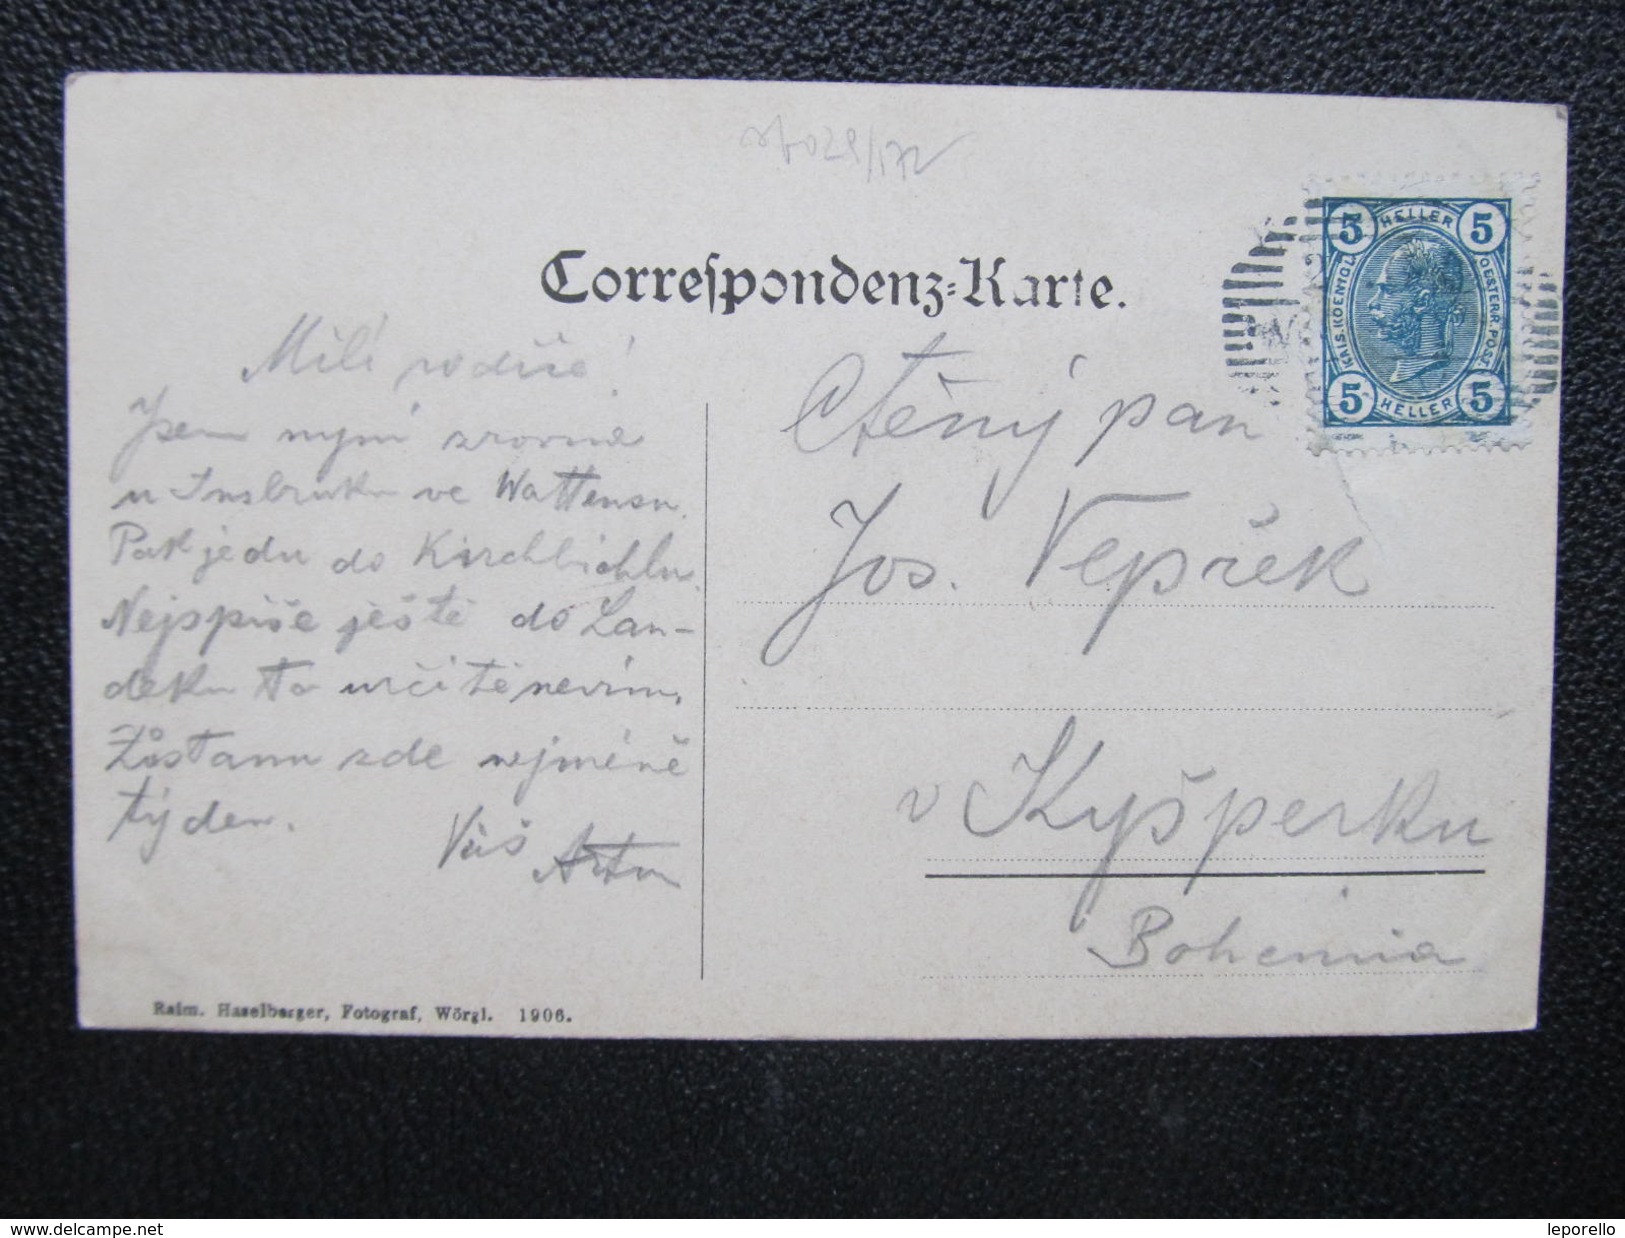 Correspondenz-Karte.
5 HELLER 5
KAIS. KOENIGL. OESTERR. POST
5 HELLER 5
Milí rodiče!
Jsem nyní zrovna
u Insbruku ve Wattensu.
Pak jedu do Kirchbichlu.
Nejspíše ještě do Lan-
deku to určitě nevím.
Zůstanu zde nejméně
týden.
Váš Artur
Ctěný pan
Jos. Vepřek
v Kyšperku
Bohemia
Raim. Haselberger, Fotograf, Wörgl. 1906.
www.delcampe.net
leporello